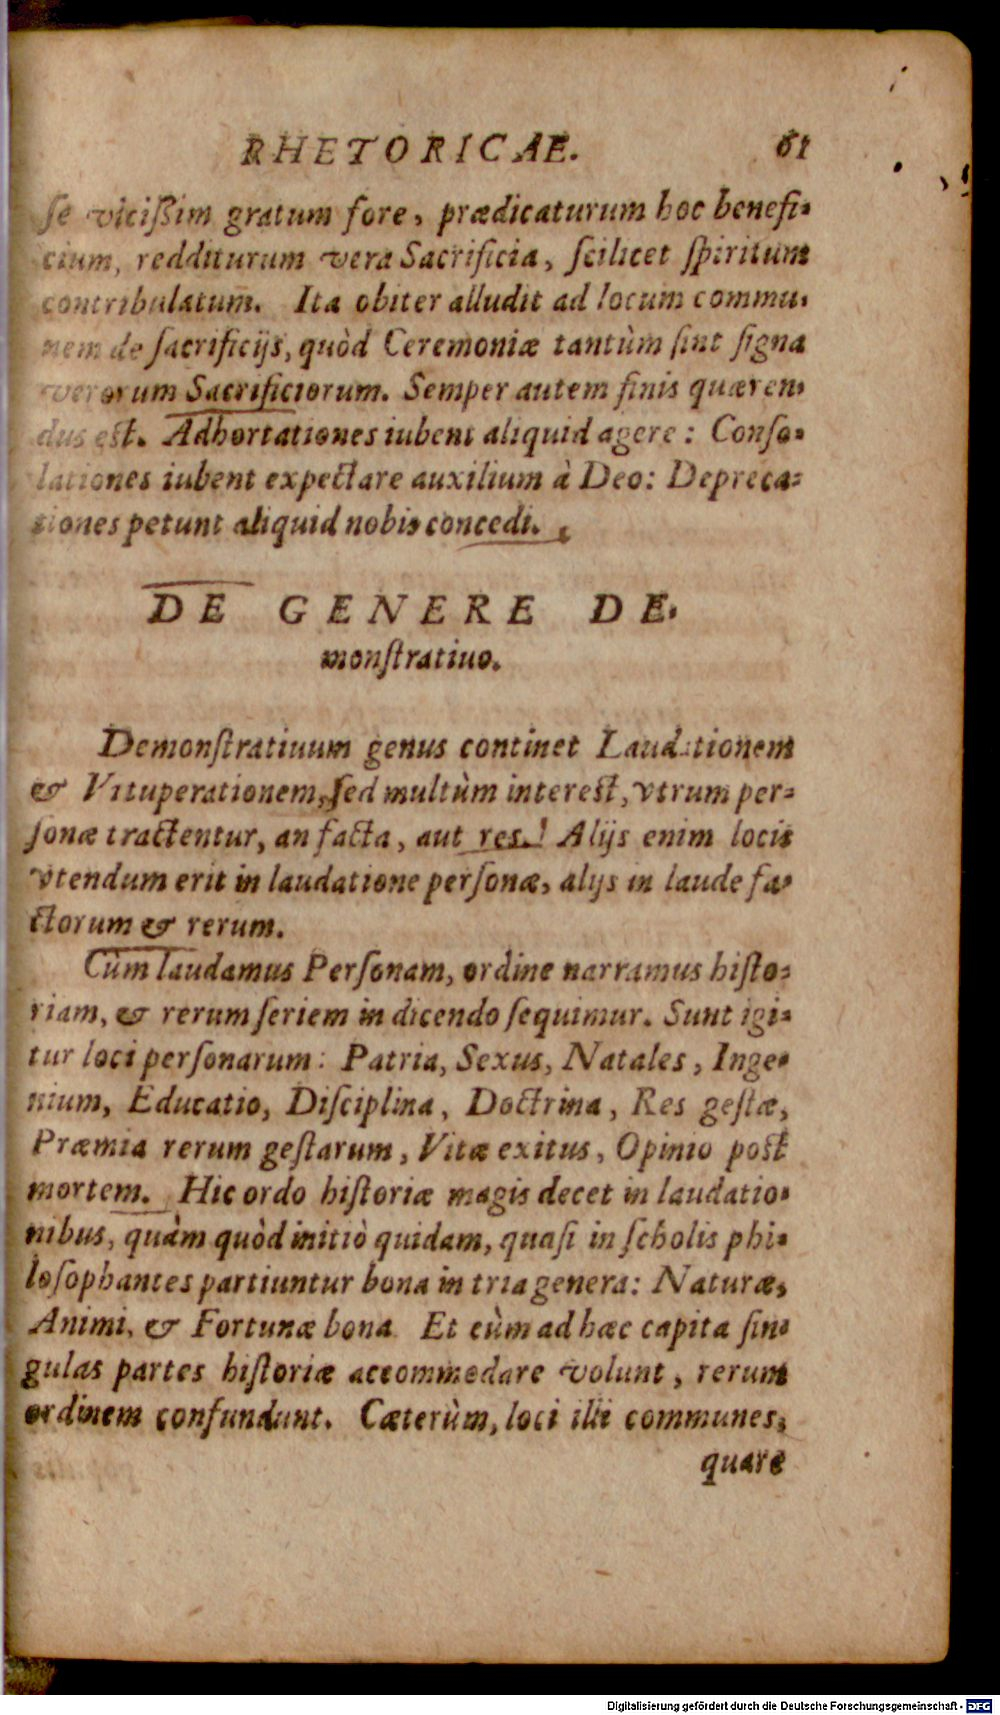 RHETORICAE. 61
se vicißim gratum fore, prædicaturum hoc benefi-
cium, redditurum vera Sacrificia, scilicet spiritum
contribulatum. Ita obiter alludit ad locum commu-
nem de sacrificijs, quòd Ceremoniæ tantùm sint signa
verorum Sacrificiorum. Semper autem finis quæren-
dus est. Adhortationes iubent aliquid agere: Conso-
lationes iubent expectare auxilium à Deo: Depreca-
tiones petunt aliquid nobis concedi.
DE GENERE DE-
monstratiuo.
Demonstratiuum genus continet Laudationem
& Vituperationem, sed multùm interest, vtrum per-
sonæ tractentur, an facta, aut res. Alijs enim locis
vtendum erit in laudatione personæ, alijs in laude fa-
ctorum & rerum.
Cùm laudamus Personam, ordine narramus histo-
riam, & rerum seriem in dicendo sequimur. Sunt igi-
tur loci personarum: Patria, Sexus, Natales, Inge-
nium, Educatio, Disciplina, Doctrina, Res gestæ,
Præmia rerum gestarum, Vitæ exitus, Opinio post
mortem. Hic ordo historiæ magis decet in laudatio-
nibus, quàm quòd initiò quidam, quasi in scholis phi-
losophantes partiuntur bona in tria genera: Naturæ,
Animi, & Fortunæ bona. Et cùm ad hæc capita sin-
gulas partes historiæ accommodare volunt, rerum
ordinem confundunt. Cæterùm, loci illi communes,
quare
Digitalisierung gefördert durch die Deutsche Forschungsgemeinschaft - DFG